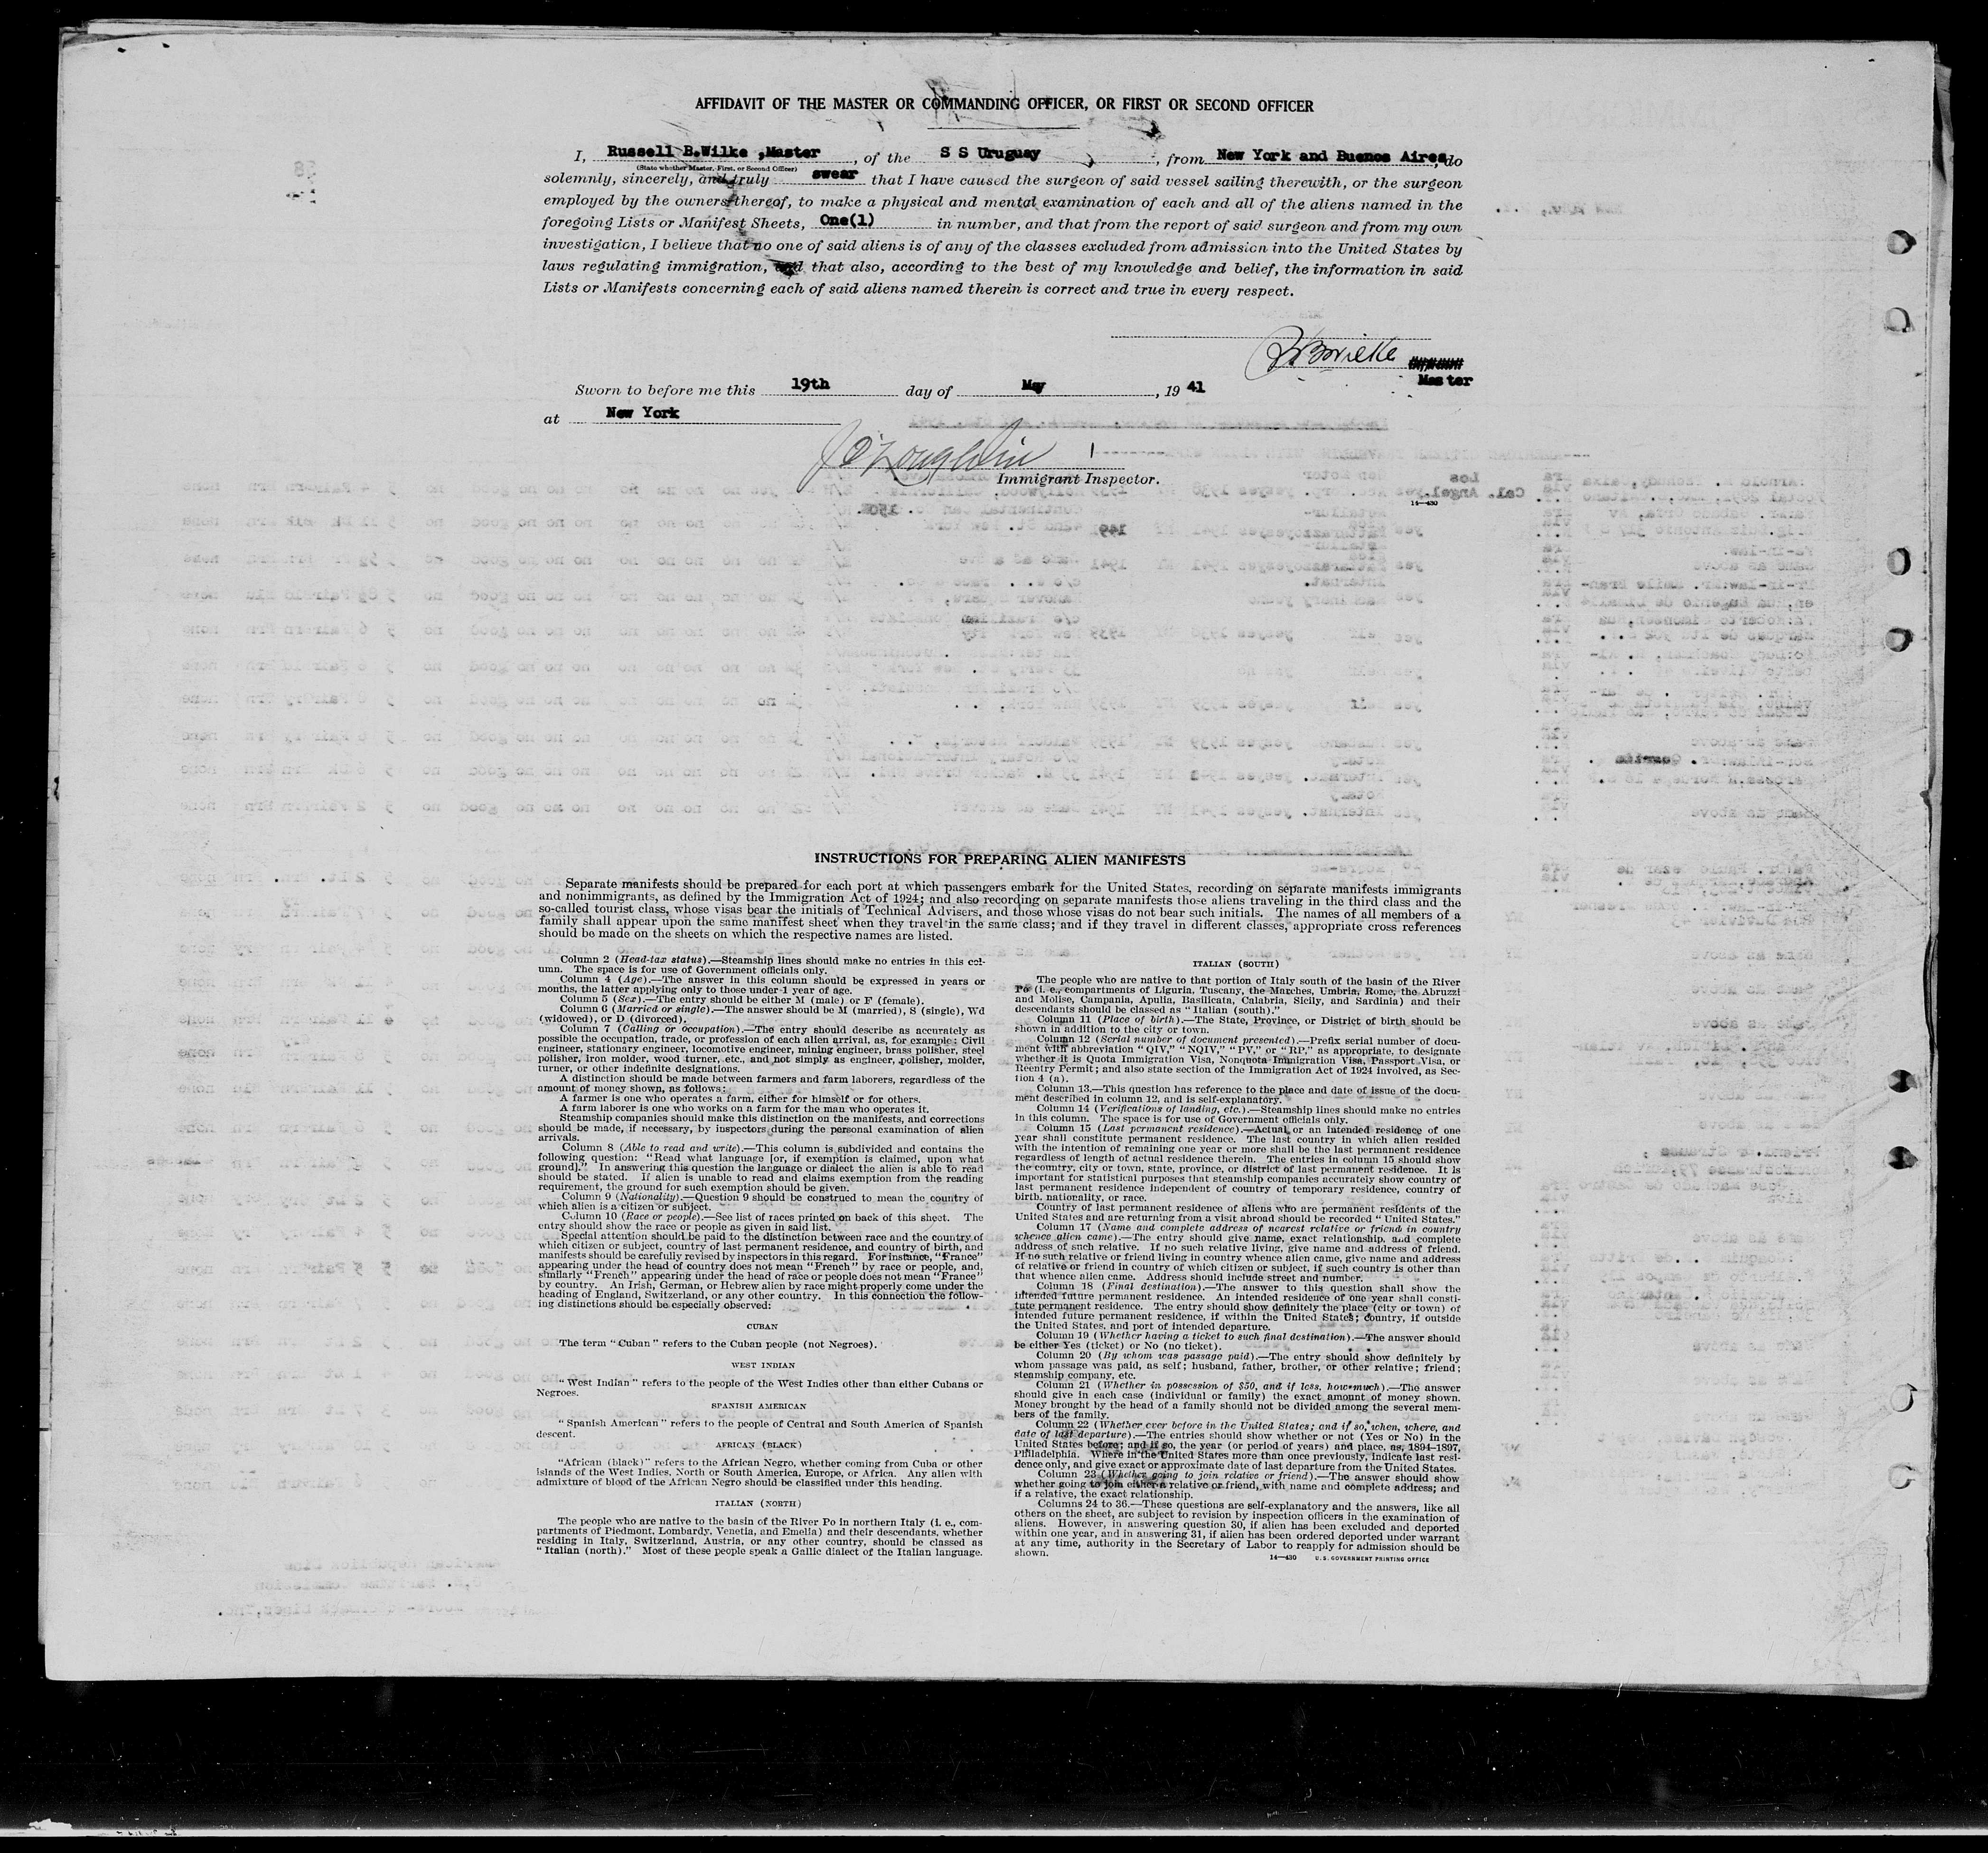 AFFIDAVIT OF THE MASTER OR COMMANDING OFFICER, OR FIRST OR SECOND OFFICER
I, Russell B.Wilke ,Master, of the S S Uruguay, from New York and Buenos Aires, do
(State whether Master, First, or Second Officer)
solemnly, sincerely, and truly swear that I have caused the surgeon of said vessel sailing therewith, or the surgeon
employed by the owners thereof, to make a physical and mental examination of each and all of the aliens named in the
foregoing Lists or Manifest Sheets, One(1) in number, and that from the report of said surgeon and from my own
investigation, I believe that no one of said aliens is of any of the classes excluded from admission into the United States by
laws regulating immigration, and that also, according to the best of my knowledge and belief, the information in said
Lists or Manifests concerning each of said aliens named therein is correct and true in every respect.
RBWilke
Master
Sworn to before me this 19th day of May, 19 41
at New York
Immigrant Inspector.
14—430
INSTRUCTIONS FOR PREPARING ALIEN MANIFESTS
Separate manifests should be prepared for each port at which passengers embark for the United States, recording on separate manifests immigrants
and nonimmigrants, as defined by the Immigration Act of 1924; and also recording on separate manifests those aliens traveling in the third class and the
so-called tourist class, whose visas bear the initials of Technical Advisers, and those whose visas do not bear such initials. The names of all members of a
family shall appear upon the same manifest sheet when they travel in the same class; and if they travel in different classes, appropriate cross references
should be made on the sheets on which the respective names are listed.
Column 2 (Head-tax status).—Steamship lines should make no entries in this col-
umn. The space is for use of Government officials only.
Column 4 (Age).—The answer in this column should be expressed in years or
months, the latter applying only to those under 1 year of age.
Column 5 (Sex).—The entry should be either M (male) or F (female).
Column 6 (Married or single).—The answer should be M (married), S (single), Wd
(widowed), or D (divorced).
Column 7 (Calling or occupation).—The entry should describe as accurately as
possible the occupation, trade, or profession of each alien arrival, as, for example: Civil
engineer, stationary engineer, locomotive engineer, mining engineer, brass polisher, steel
polisher, iron molder, wood turner, etc., and not simply as engineer, polisher, molder,
turner, or other indefinite designations.
A distinction should be made between farmers and farm laborers, regardless of the
amount of money shown, as follows:
A farmer is one who operates a farm, either for himself or for others.
A farm laborer is one who works on a farm for the man who operates it.
Steamship companies should make this distinction on the manifests, and corrections
should be made, if necessary, by inspectors during the personal examination of alien
arrivals.
Column 8 (Able to read and write).—This column is subdivided and contains the
following question: "Read what language [or, if exemption is claimed, upon what
ground]." In answering this question the language or dialect the alien is able to read
should be stated. If alien is unable to read and claims exemption from the reading
requirement, the ground for such exemption should be given.
Column 9 (Nationality).—Question 9 should be construed to mean the country of
which alien is a citizen or subject.
Column 10 (Race or people).—See list of races printed on back of this sheet. The
entry should show the race or people as given in said list.
Special attention should be paid to the distinction between race and the country of
which citizen or subject, country of last permanent residence, and country of birth, and
manifests should be carefully revised by inspectors in this regard. For instance, "France"
appearing under the head of country does not mean "French" by race or people, and,
similarly "French" appearing under the head of race or people does not mean "France"
by country. An Irish, German, or Hebrew alien by race might properly come under the
heading of England, Switzerland, or any other country. In this connection the follow-
ing distinctions should be especially observed:
CUBAN
The term "Cuban" refers to the Cuban people (not Negroes).
WEST INDIAN
"West Indian" refers to the people of the West Indies other than either Cubans or
Negroes.
SPANISH AMERICAN
"Spanish American" refers to the people of Central and South America of Spanish
descent.
AFRICAN (BLACK)
"African (black)" refers to the African Negro, whether coming from Cuba or other
islands of the West Indies, North or South America, Europe, or Africa. Any alien with
admixture of blood of the African Negro should be classified under this heading.
ITALIAN (NORTH)
The people who are native to the basin of the River Po in northern Italy (i. e., com-
partments of Piedmont, Lombardy, Venetia, and Emelia) and their descendants, whether
residing in Italy, Switzerland, Austria, or any other country, should be classed as
"Italian (north)." Most of these people speak a Gallic dialect of the Italian language.
ITALIAN (SOUTH)
The people who are native to that portion of Italy south of the basin of the River
Po (i. e., compartments of Liguria, Tuscany, the Marches, Umbria, Rome, the Abruzzi
and Molise, Campania, Apulia, Basilicata, Calabria, Sicily, and Sardinia) and their
descendants should be classed as "Italian (south)."
Column 11 (Place of birth).—The State, Province, or District of birth should be
shown in addition to the city or town.
Column 12 (Serial number of document presented).—Prefix serial number of docu-
ment with abbreviation "QIV," "NQIV," "PV," or "RP," as appropriate, to designate
whether it is Quota Immigration Visa, Nonquota Immigration Visa, Passport Visa, or
Reentry Permit; and also state section of the Immigration Act of 1924 involved, as Sec-
tion 4 (a).
Column 13.—This question has reference to the place and date of issue of the docu-
ment described in column 12, and is self-explanatory.
Column 14 (Verifications of landing, etc.).—Steamship lines should make no entries
in this column. The space is for use of Government officials only.
Column 15 (Last permanent residence).—Actual or an intended residence of one
year shall constitute permanent residence. The last country in which alien resided
with the intention of remaining one year or more shall be the last permanent residence
regardless of length of actual residence therein. The entries in column 15 should show
the country, city or town, state, province, or district of last permanent residence. It is
important for statistical purposes that steamship companies accurately show country of
last permanent residence independent of country of temporary residence, country of
birth, nationality, or race.
Country of last permanent residence of aliens who are permanent residents of the
United States and are returning from a visit abroad should be recorded "United States."
Column 17 (Name and complete address of nearest relative or friend in country
whence alien came).—The entry should give name, exact relationship, and complete
address of such relative. If no such relative living, give name and address of friend.
If no such relative or friend living in country whence alien came, give name and address
of relative or friend in country of which citizen or subject, if such country is other than
that whence alien came. Address should include street and number.
Column 18 (Final destination).—The answer to this question shall show the
intended future permanent residence. An intended residence of one year shall consti-
tute permanent residence. The entry should show definitely the place (city or town) of
intended future permanent residence, if within the United States; country, if outside
the United States, and port of intended departure.
Column 19 (Whether having a ticket to such final destination).—The answer should
be either Yes (ticket) or No (no ticket).
Column 20 (By whom was passage paid).—The entry should show definitely by
whom passage was paid, as self; husband, father, brother, or other relative; friend;
steamship company, etc.
Column 21 (Whether in possession of $50, and if less, how much).—The answer
should give in each case (individual or family) the exact amount of money shown.
Money brought by the head of a family should not be divided among the several mem-
bers of the family.
Column 22 (Whether ever before in the United States; and if so, when, where, and
date of last departure).—The entries should show whether or not (Yes or No) in the
United States before; and if so, the year (or period of years) and place, as, 1894–1897,
Philadelphia. Where in the United States more than once previously, indicate last resi-
dence only, and give exact or approximate date of last departure from the United States.
Column 23 (Whether going to join relative or friend).—The answer should show
whether going to join either a relative or friend, with name and complete address; and
if a relative, the exact relationship.
Columns 24 to 36.—These questions are self-explanatory and the answers, like all
others on the sheet, are subject to revision by inspection officers in the examination of
aliens. However, in answering question 30, if alien has been excluded and deported
within one year, and in answering 31, if alien has been ordered deported under warrant
at any time, authority in the Secretary of Labor to reapply for admission should be
shown.
14—430 U.S. GOVERNMENT PRINTING OFFICE